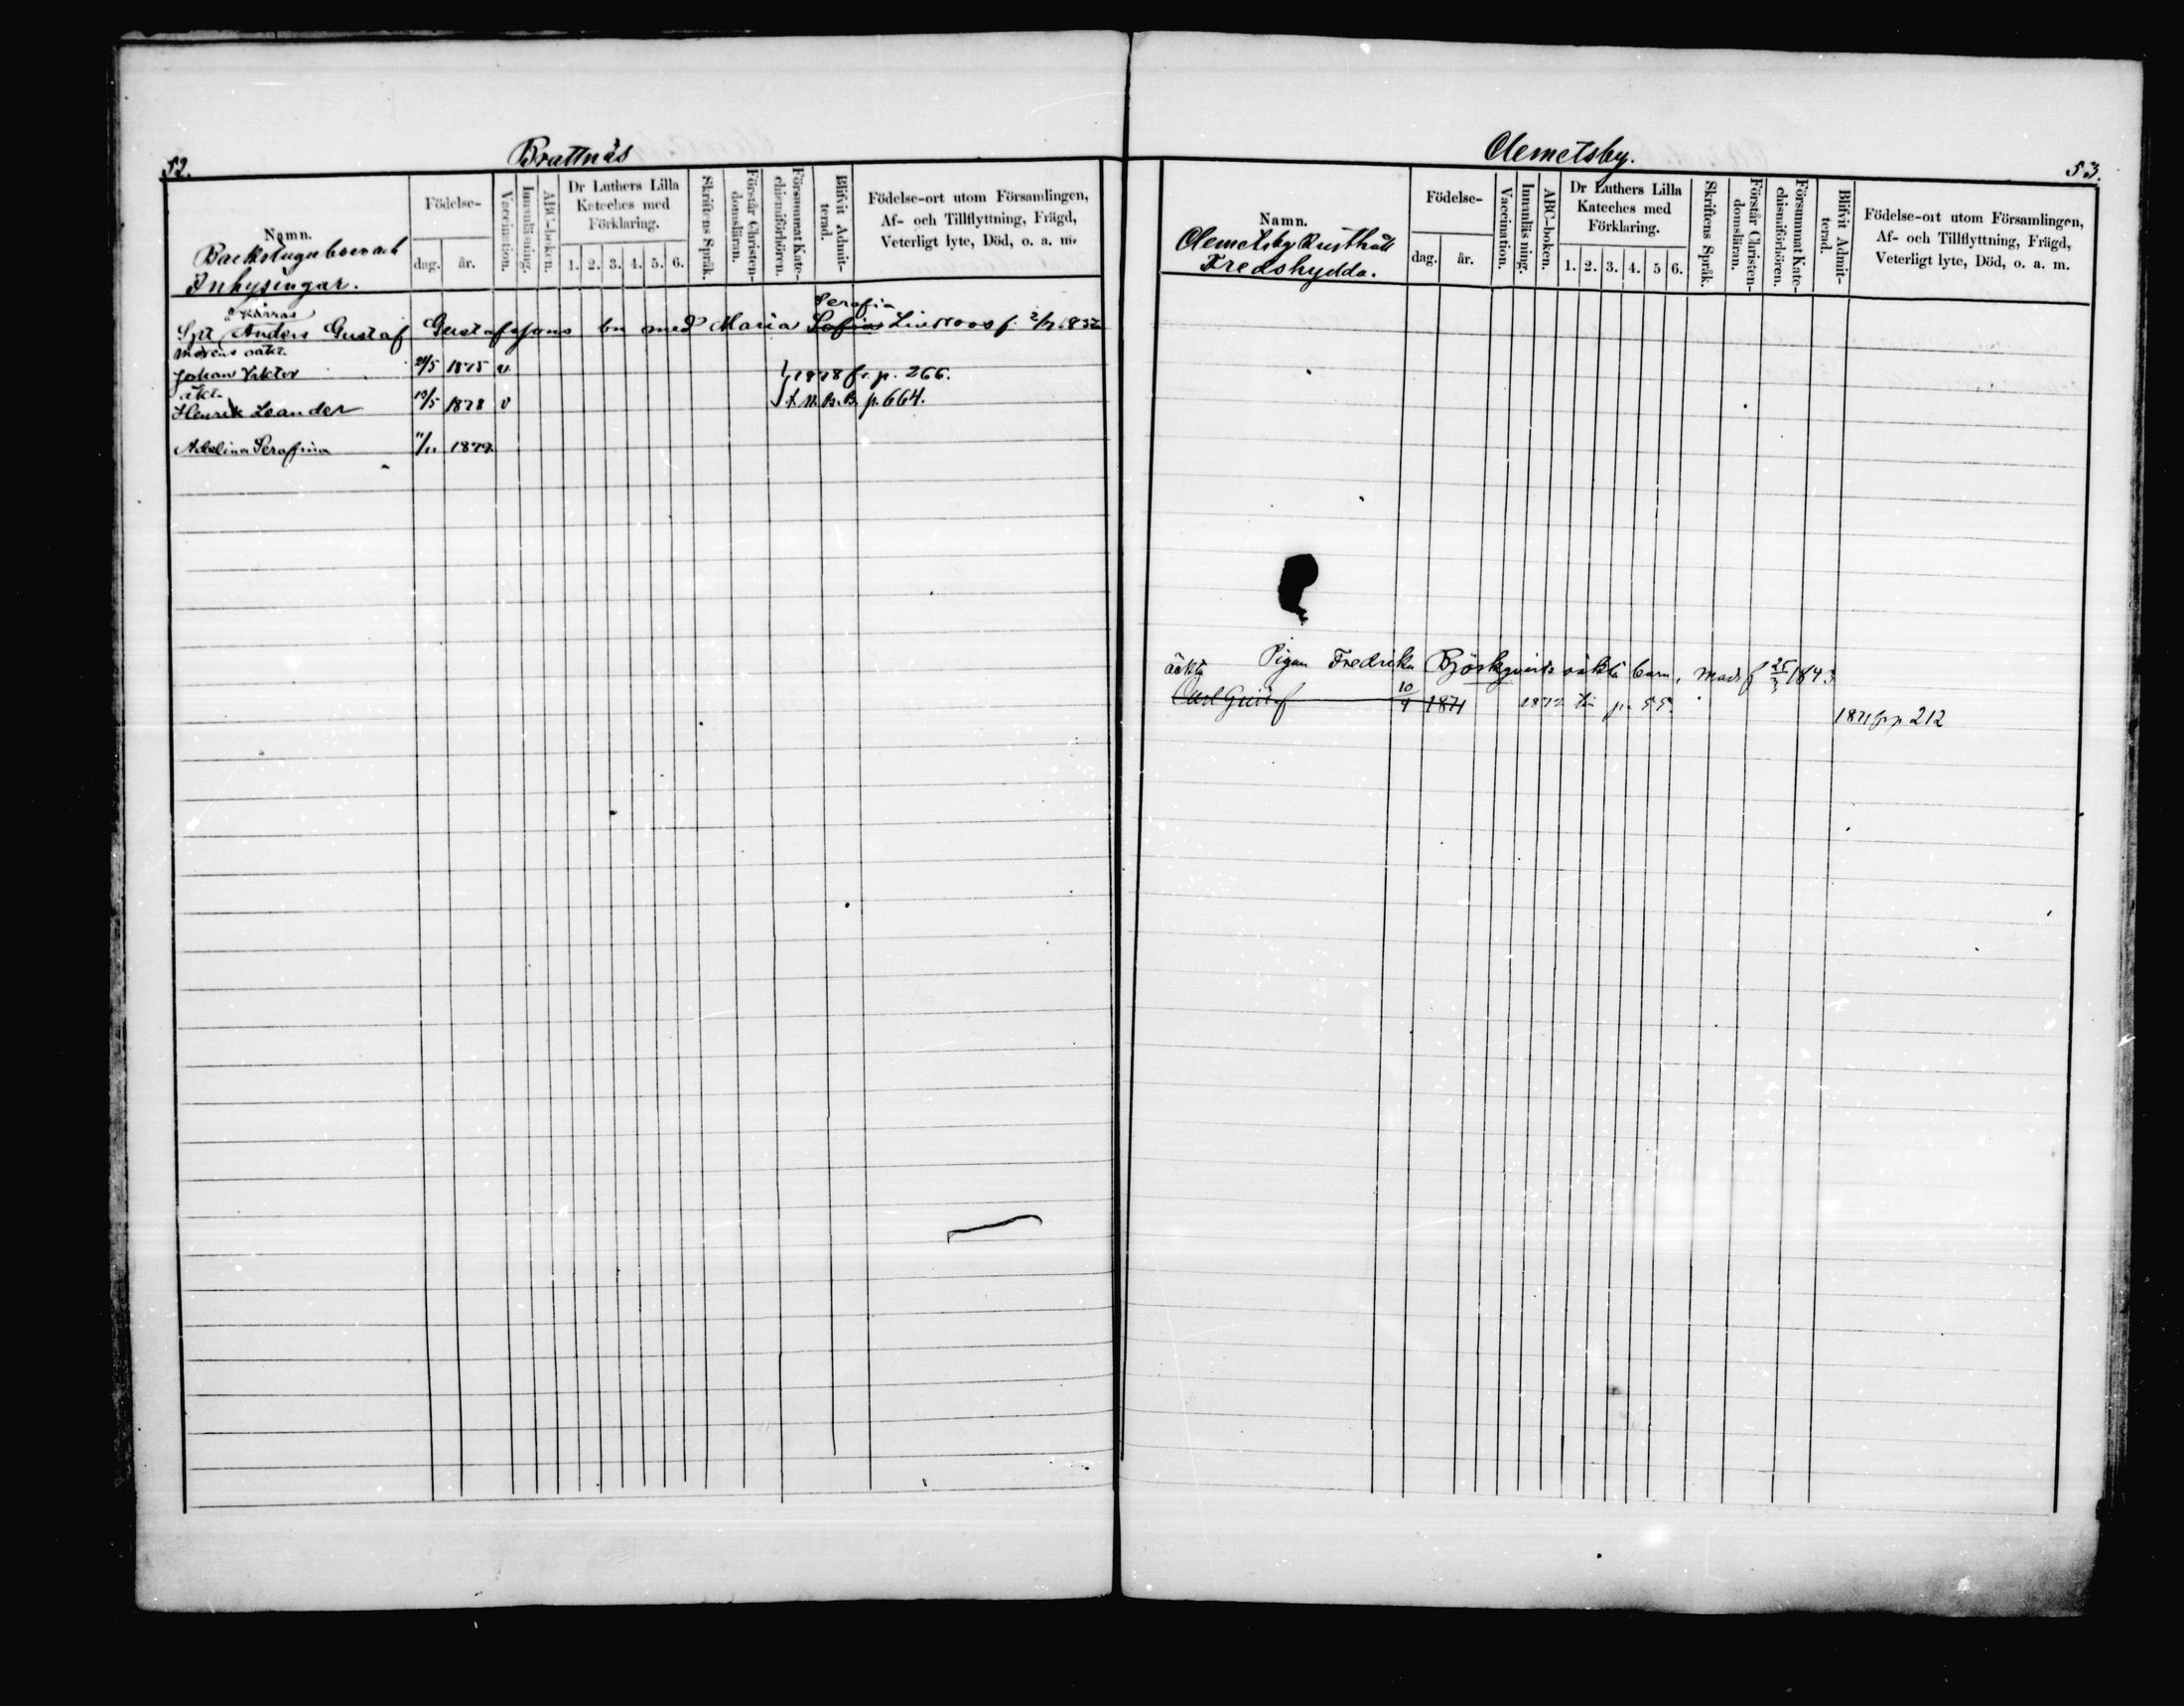 52.
Brattnäs
Namn.
Backstuguboer och
Inhysingar.
Födelse-
dag. år.
Vaccination.
Innanläsning.
ABC-boken.
Dr Luthers Lilla
Kateches med
Förklaring.
1. 2. 3. 4. 5. 6.
Skriftens Språk.
Förstår Christen-
domsläran.
Försummat Kate-
chismiförhören.
Blifvit Admit-
terad.
Födelse-ort utom Församlingen,
Af- och Tillflyttning, Frägd,
Veterligt lyte, Död, o. a. m.
Serafia
Spt Anders Gustaf Gustafssons bn med Maria Sofia f. 2/7 1832
morens oäkt.
Johan Viktor /5 1875 v 1878 fr. p. 266.
äkt.
Henrik Leander 13/5 1878 v N. B. B. p. 664.
Adelina Serafina 11/11 1879
Clemetsby.
53.
Namn.
Clemetsby Rusthåll
Fredshydda.
Födelse-
dag. år.
Vaccination.
Innanläsning.
ABC-boken.
Dr Luthers Lilla
Kateches med
Förklaring.
1. 2. 3. 4. 5 6.
Skriftens Språk.
Förstår Christen-
domsläran.
Försummat Kate-
chismiförhören.
Blifvit Admit-
terad.
Födelse-ort utom Församlingen,
Af- och Tillflyttning, Frägd,
Veterligt lyte, Död, o. a. m.
Pigan Fredrika Björkqvists oäkta barn, mod. f 25/3 1843
äckta
Carl Gustaf 10/9 1871 1872 till p. 55.
1871 fr p 212